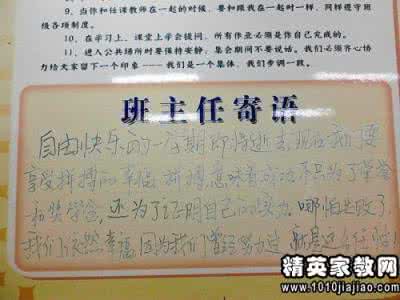 9、当你和任课教师在一起的时候,要和跟我在一起时一样,同样遵守班
级各项制度。
10、在学习上,课堂上学会提问,所有作业必须是你自己完成的。
11、进入公共场所时要保持安静;集会期间不要说话。我们必须齐心协
力给大家留下一个印象——我们是一个集体,我们步调一致。
班主任寄语
自由快乐的一星期即将逝去,现在我们要
享受拼搏的幸福,拼搏意味着成功不只为了荣誉
和奖学金,还为了证明自己的实力。哪怕失败了
我们依然幸福,因为我们曾经努力过,
精英家教网
www.1010jiajiao.com